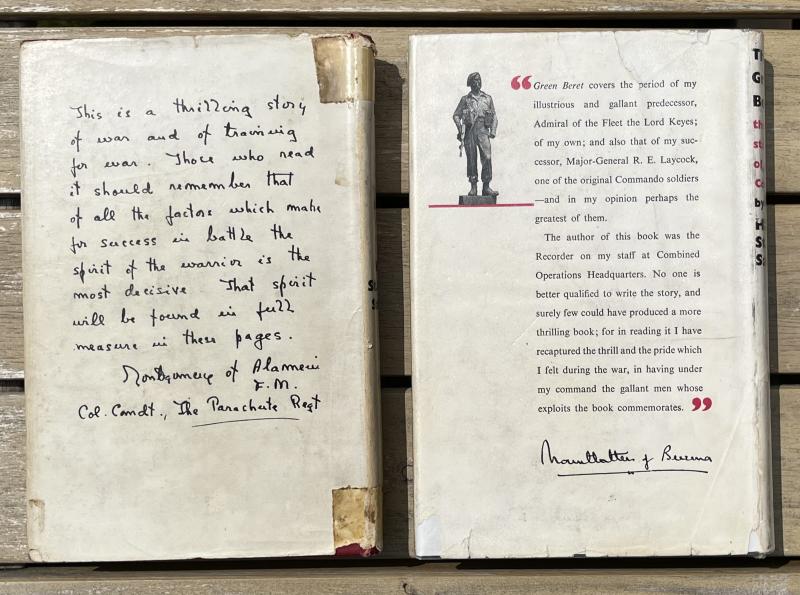 This is a thrilling story
of war and of training
for war. Those who read
it should remember that
of all the factors which make
for success in battle the
spirit of the warrior is the
most decisive That spirit
will be found in full
measure in these pages.
Montgomery of Alamein
F.M.
Col. Comdt., The Parachute Regt
“ Green Beret covers the period of my
illustrious and gallant predecessor,
Admiral of the Fleet the Lord Keyes;
of my own; and also that of my suc-
cessor, Major-General R. E. Laycock,
one of the original Commando soldiers
—and in my opinion perhaps the
greatest of them.
The author of this book was the
Recorder on my staff at Combined
Operations Headquarters. No one is
better qualified to write the story, and
surely few could have produced a more
thrilling book; for in reading it I have
recaptured the thrill and the pride which
I felt during the war, in having under
my command the gallant men whose
exploits the book commemorates. ”
Mountbatten of Burma